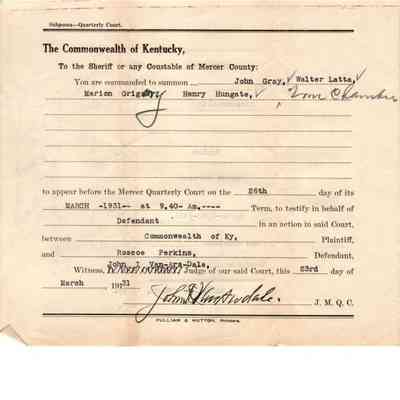 Subpoena—Quarterly Court.
The Commonwealth of Kentucky,
To the Sheriff or any Constable of Mercer County:
You are commanded to summon John Gray, Walter Latta,
Marion Grigsby, Henry Hungate, Tom
to appear before the Mercer Quarterly Court on the 26th day of its
MARCH -1931-- at 9,40- Am,---- Term, to testify in behalf of
Defendant in an action in said Court,
between Commonwealth of Ky, Plaintiff,
and Roscoe Perkins, Defendant.
John I Van-Ars-Dale,
Witness, Judge of our said Court, this 23rd day of
March 1931
John I Van Arsdale. J. M. Q. C.
PULLIAM & HUTTON, PRINTERS